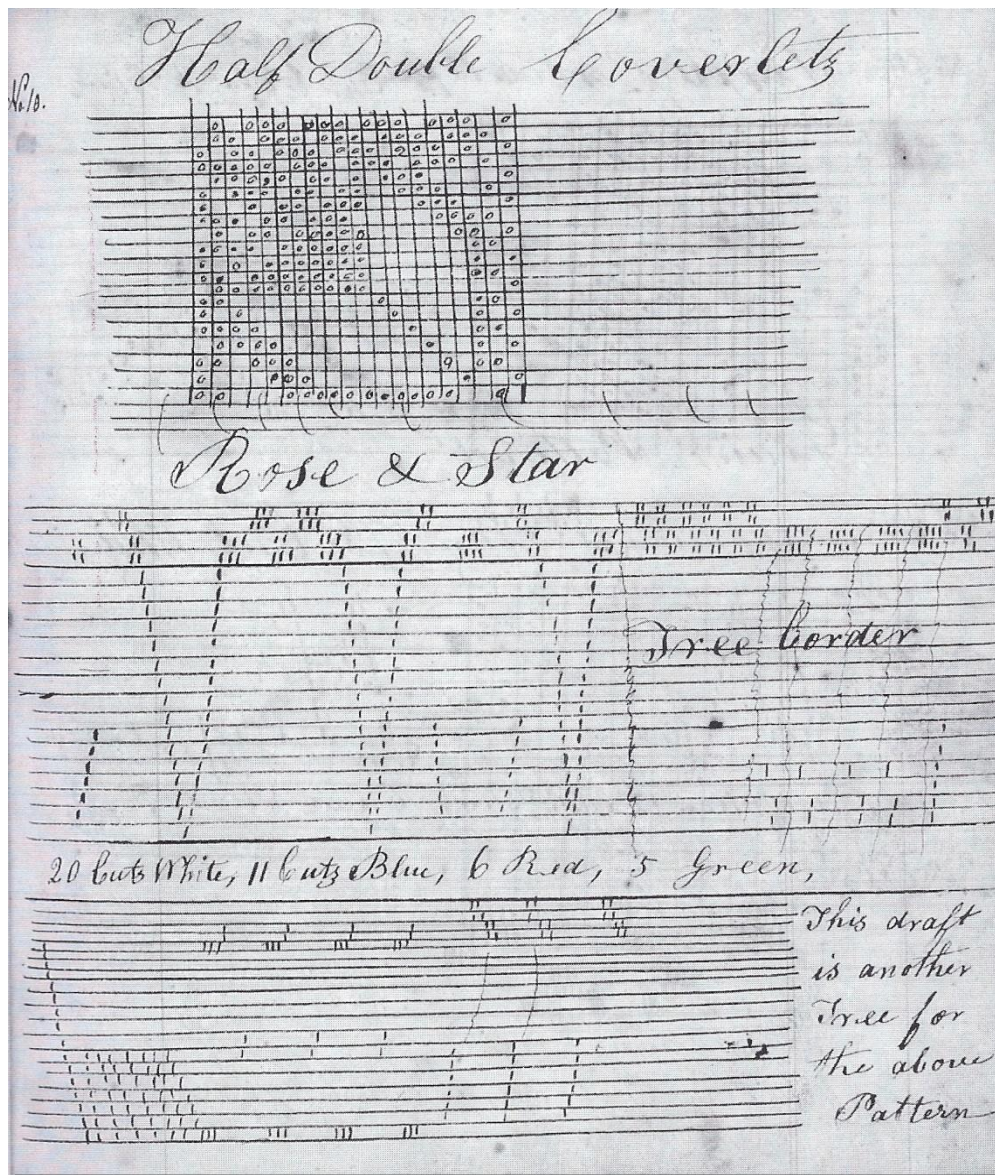 Half Double Coverletz
No. 10.
Rose & Star
Tree Border
20 Cutz White, 11 Cutz Blue, 6 Red, 5 Green,
This draft
is another
Tree for
the above
Pattern